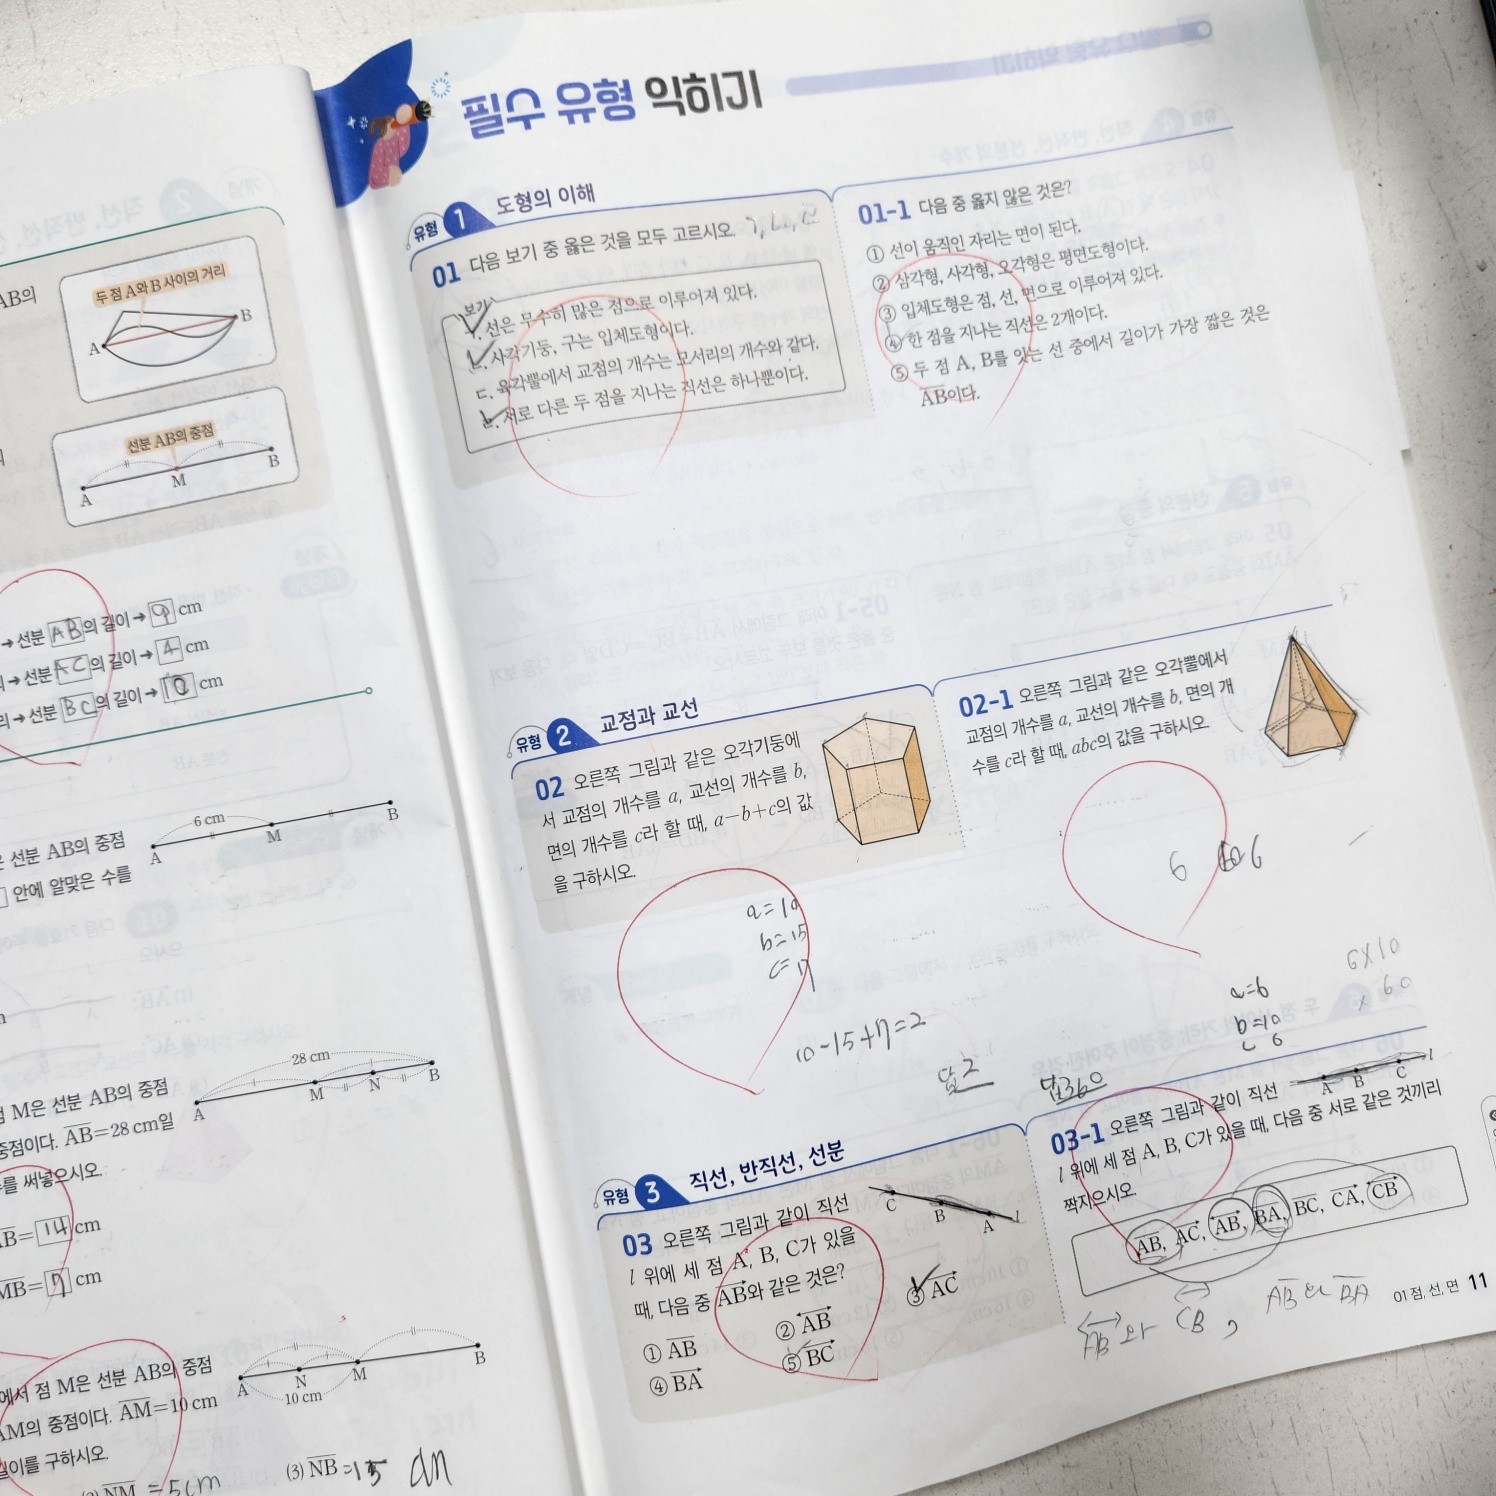 필수 유형 익히기
AB의
두 점 A와 B 사이의 거리
A
B
선분 AB의 중점
A
M
B
→ 선분 AB의 길이 → 9 cm
→ 선분 AC의 길이 → 4 cm
→ 선분 BC의 길이 → 10 cm
6 cm
A
M
B
선분 AB의 중점
안에 알맞은 수를
28 cm
A
M
N
B
점 M은 선분 AB의 중점
중점이다. AB=28 cm일
를 써넣으시오.
B=14 cm
MB=7 cm
A
N
M
B
10 cm
에서 점 M은 선분 AB의 중점
AM의 중점이다. AM=10 cm
길이를 구하시오.
NM =5cm
(3) NB =15 cm
유형 1 도형의 이해
01 다음 보기 중 옳은 것을 모두 고르시오. ㄱ, ㄴ, ㄹ
보기
ㄱ. 선은 무수히 많은 점으로 이루어져 있다.
ㄴ. 사각기둥, 구는 입체도형이다.
ㄷ. 육각뿔에서 교점의 개수는 모서리의 개수와 같다.
ㄹ. 서로 다른 두 점을 지나는 직선은 하나뿐이다.
01-1 다음 중 옳지 않은 것은?
① 선이 움직인 자리는 면이 된다.
② 삼각형, 사각형, 오각형은 평면도형이다.
③ 입체도형은 점, 선, 면으로 이루어져 있다.
④ 한 점을 지나는 직선은 2개이다.
⑤ 두 점 A, B를 잇는 선 중에서 길이가 가장 짧은 것은
AB이다.
유형 2 교점과 교선
02 오른쪽 그림과 같은 오각기둥에
서 교점의 개수를 a, 교선의 개수를 b,
면의 개수를 c라 할 때, a-b+c의 값
을 구하시오.
a=10
b=15
c=7
10-15+7=2
답 2
02-1 오른쪽 그림과 같은 오각뿔에서
교점의 개수를 a, 교선의 개수를 b, 면의 개
수를 c라 할 때, abc의 값을 구하시오.
a=6
b=10
c 6
6×10
× 60
답 360
유형 3 직선, 반직선, 선분
03 오른쪽 그림과 같이 직선
l 위에 세 점 A, B, C가 있을
때, 다음 중 AB와 같은 것은?
C
B
A
l
① AB
② AB
③ AC
④ BA
⑤ BC
03-1 오른쪽 그림과 같이 직선
l 위에 세 점 A, B, C가 있을 때, 다음 중 서로 같은 것끼리
짝지으시오.
A
B
C
l
AB, AC, AB, BA, BC, CA, CB
AB 와 CB , AB 와 BA
01 점, 선, 면 11